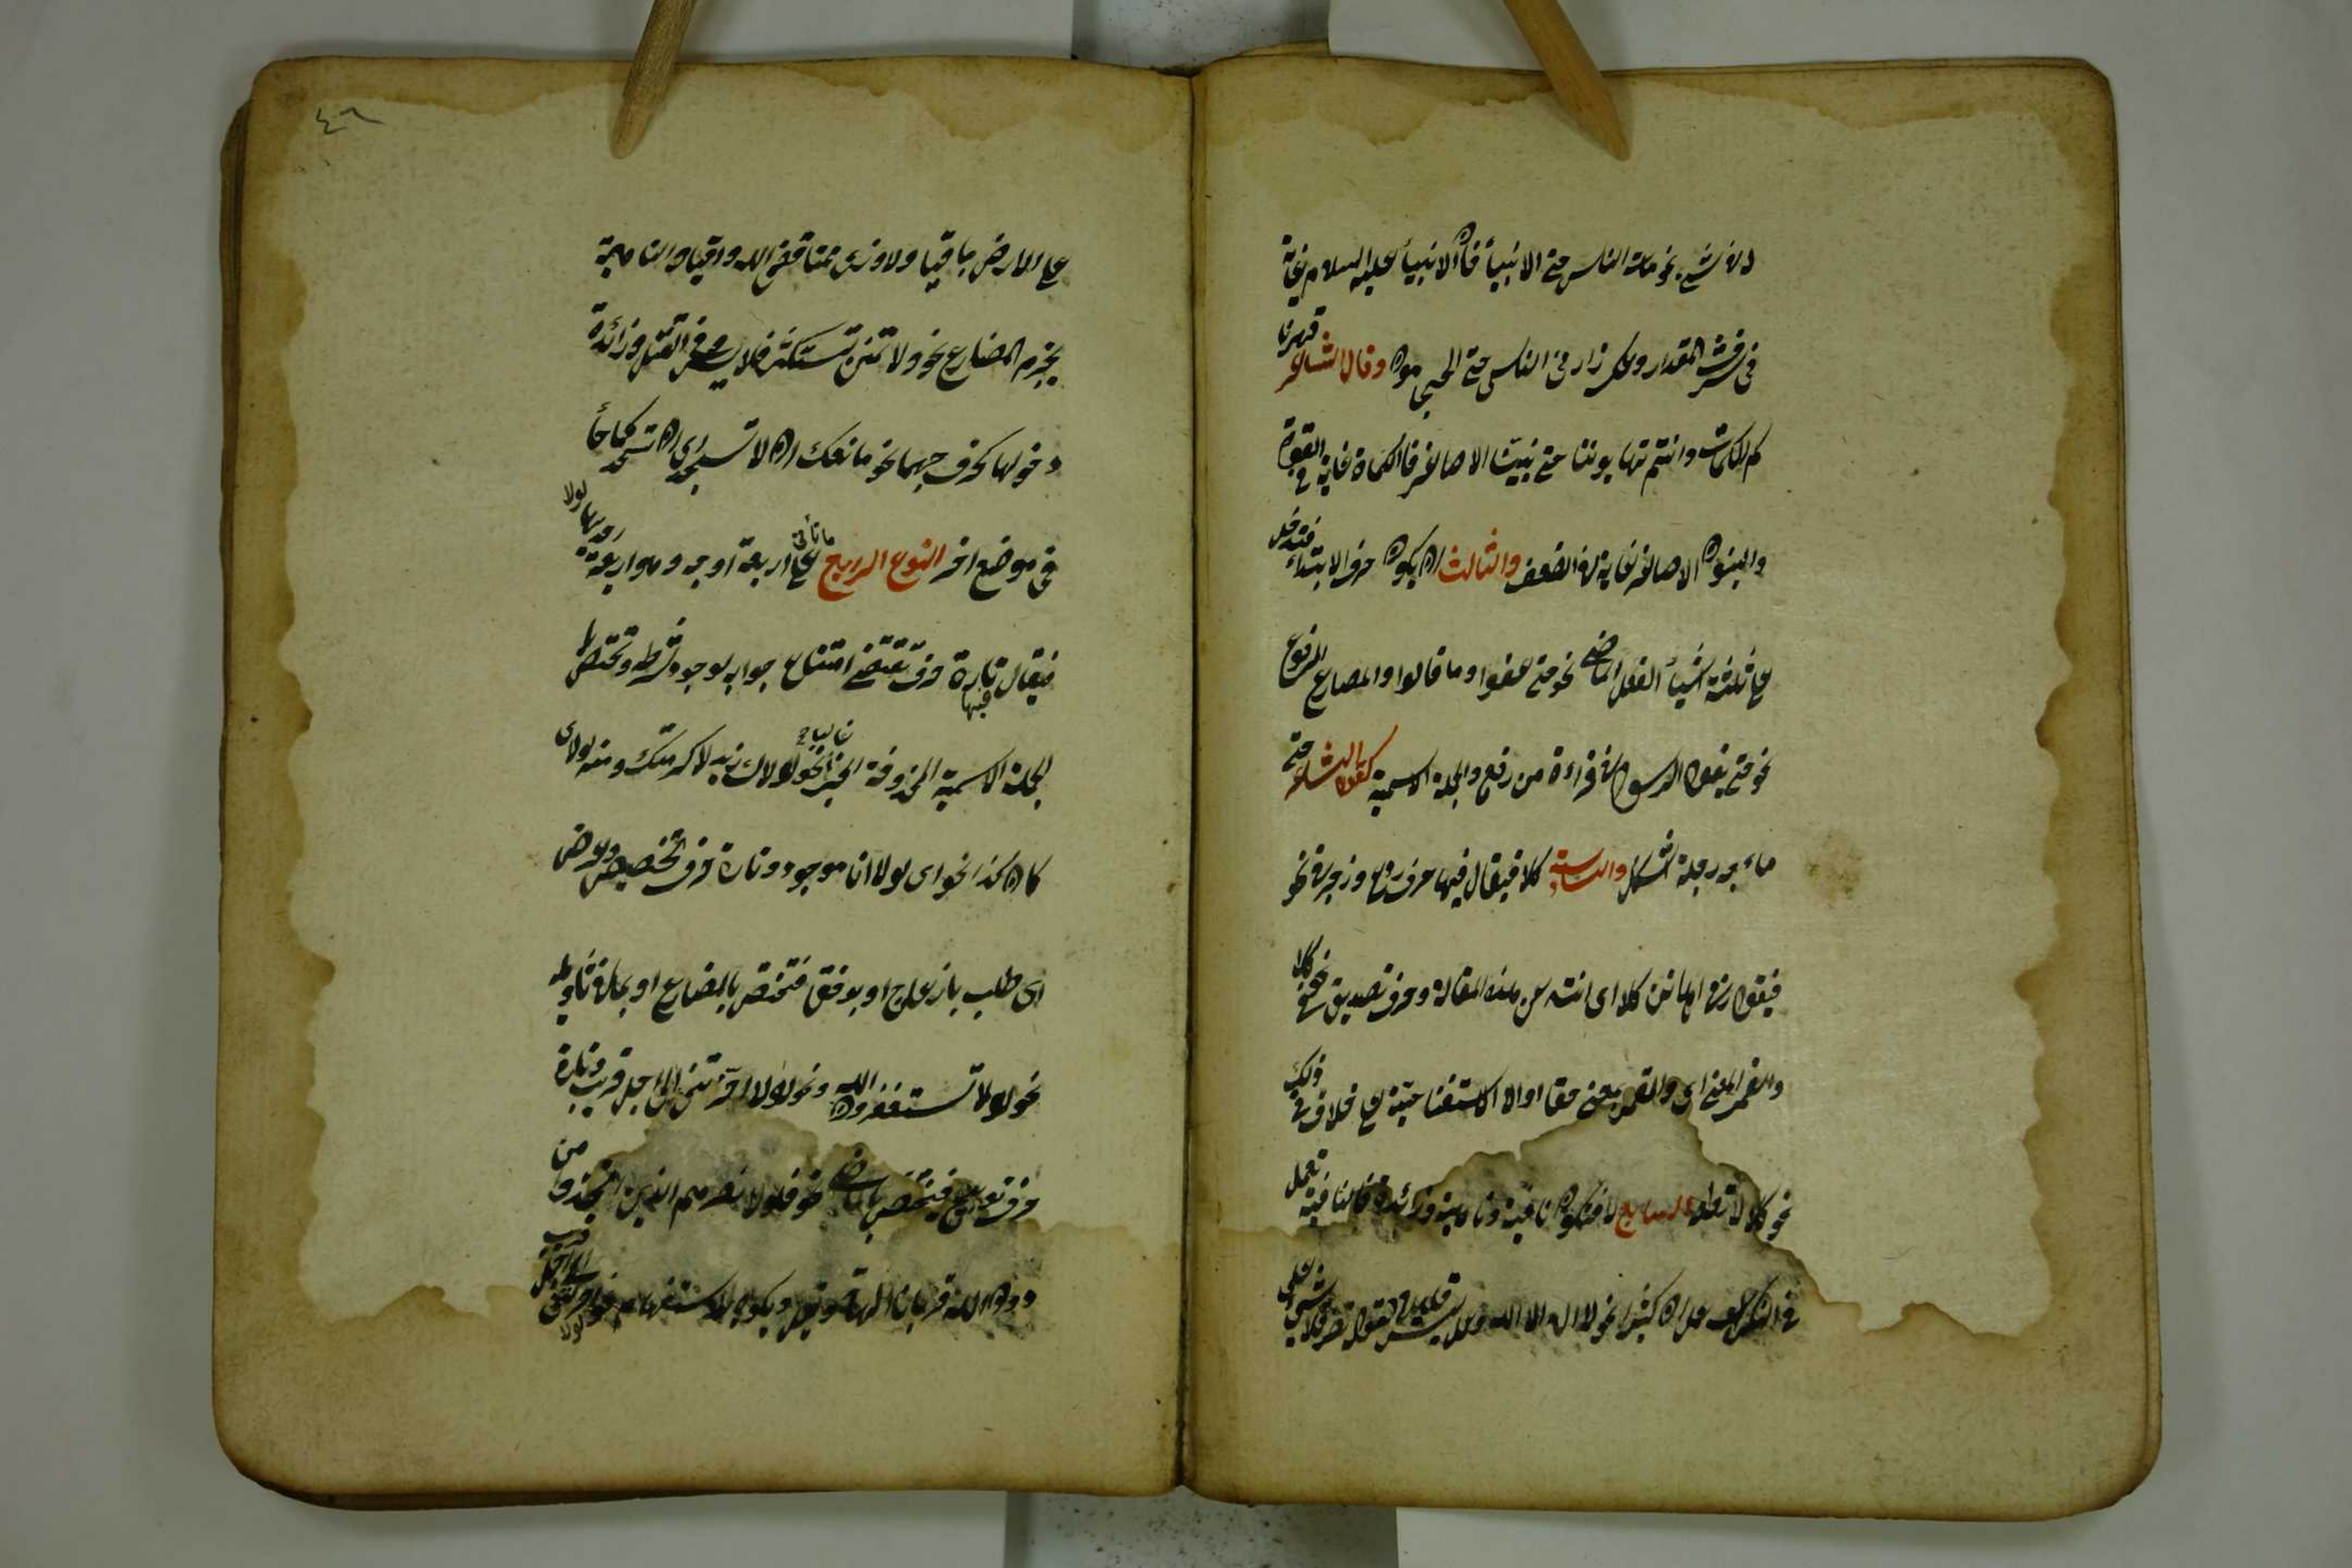 او فى شىء نحو مات الناس حتى الانبياء فان الانبياء عليهم السلام غاية
فى شرف المقدار وعكسه زارنى الناس حتى الحجامون وقال الشاعر قهرنا
كم الكماة وانتم تهابوننا حتى بنينا الاصاغر فالكماة غاية فى القوة
والبنون الاصاغر غاية فى الضعف والثالث ان يكون حرف الابتداء فتدخل
على ثلثة اشياء الفعل الماضى نحو حتى عفوا وقالوا والمضارع المرفوع
نحو حتى يقول الرسول فى قراءة من رفع والجملة الاسمية كقول الشاعر حتى
ماء دجلة اشكل والسادسة كلا فيقال فيها حرف ردع وزجر فى نحو
فيقول ربى اهانن كلا اى انته عن هذه المقالة وحرف تصديق فى نحو كلا
والقمر المعنى اى والقمر بمعنى حقا او الا الاستفتاحية على خلاف فى ذلك
نحو كلا لا تطعه السابع لا فتكون نافية وناهية وزائدة فالنافية تعمل
فى النكرات عمل ان كثيرا نحو لا اله الا الله وعمل ليس قليلا كقوله تعز فلا شىء
٤٦
على الارض باقيا ولا وزر مما قضى الله واقيا والناهية
يجزم المضارع نحو ولا تمنن تستكثر فلا يسرف فى القتل وزائدة
دخولها كخروجها نحو ما منعك ان لا تسجد اى ان تسجد كما جاء
فى موضع اخر النوع الرابع ما تأتى على اربعة اوجه وهو اربعة احديها لولا
فيقال فيها تارة حرف تقتضى امتناع جوابه لوجود شرطه وتختص
بالجملة الاسمية المحذوفة الخبر غالبا نحو لولا زيد لاكرمتك ومنه لولاى
كان كذا نحو اى لولا انا موجود وتارة حرف تخصيص وعرض
اى طلب بازعاج او برفق فتختص بالمضارع او بما فى تاويله
نحو لولا تستغفرون الله ونحو لولا اخرتنى الى اجل قريب وتارة
حرف توبيخ فيختص بالماضى نحو فلولا نصرهم الذين اتخذوا من
دون الله قربانا الهة قيل ويكون للاستفهام نحو لولا اخرتنى الى اجل قريب